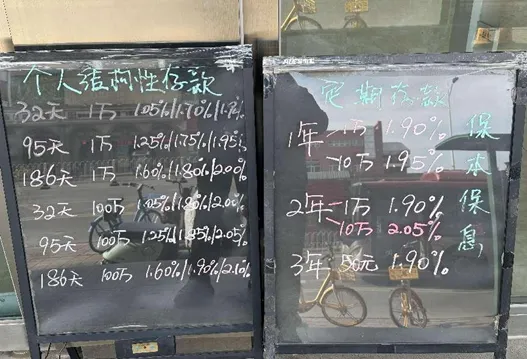 个人结构性存款
32天 1万 1.05%/1.70%/1.
95天 1万 1.25%/1.75%/1.95%
186天 1万 1.60%/1.80%/2.00%
32天 100万 1.05%/1.80%/2.00%
95天 100万 1.25%/1.85%/2.05%
186天 100万 1.60%/1.90%/2.10%
定期存款
1年 1万 1.90%
10万 1.95%
2年 1万 1.90%
10万 2.05%
3年 50元 1.90%
保本保息